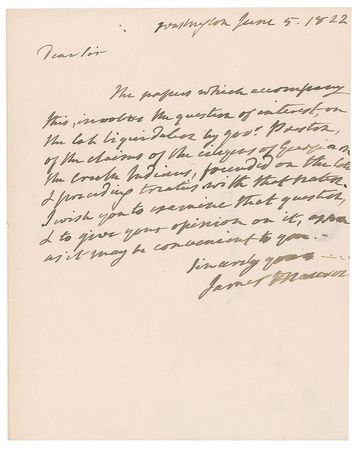 Washington June 5. 1822
Dear Sir
The papers which accompany
this, involve the question of interest, on
the late liquidation by Govr. Preston,
of the claims of the citizens of Georgia on
the Creek Indians, founded on the late
& preceding treaties with that nation.
I wish you to examine that question,
& to give your opinion on it, as soon
as it may be convenient to you.—
Sincerely yours
James Monroe